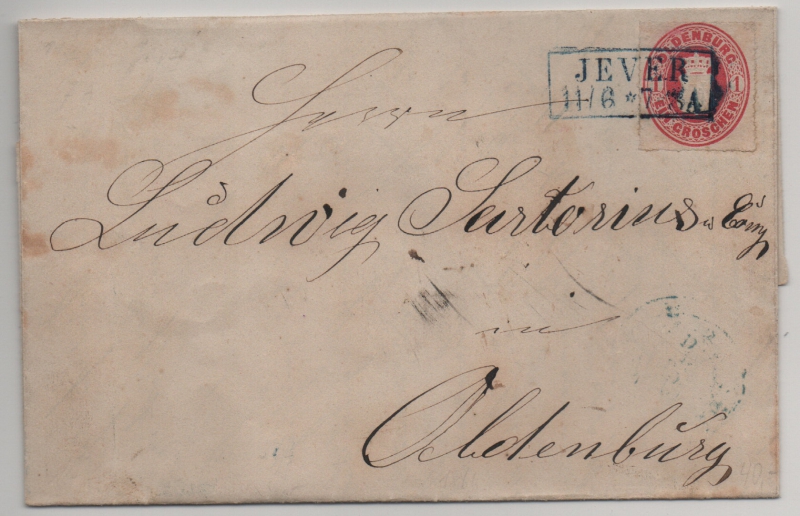 OLDENBURG
1 1
EIN GROSCHEN
JEVER
11/6 * 7-8A
Herrn
Ludwig Sartorius & Comp
in
Oldenburg
40,-